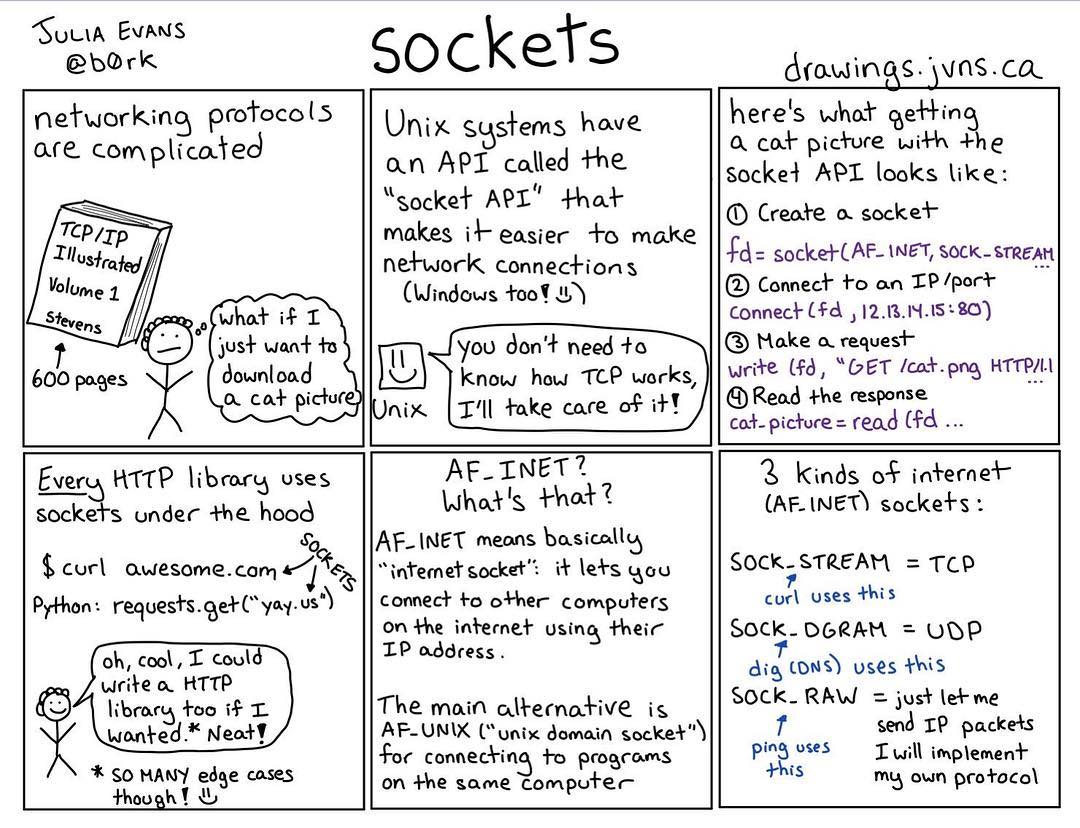 JULIA EVANS
@b0rk
sockets
drawings.jvns.ca
networking protocols
are complicated
TCP/IP
Illustrated
Volume 1
Stevens
600 pages
what if I
just want to
download
a cat picture
Unix systems have
an API called the
"socket API" that
makes it easier to make
network connections
(Windows too! )
you don't need to
know how TCP works,
I'll take care of it!
Unix
here's what getting
a cat picture with the
socket API looks like:
① Create a socket
fd= socket(AF_INET, SOCK_STREAM
...
② Connect to an IP/port
connect (fd , 12.13.14.15:80)
③ Make a request
write (fd, "GET /cat.png HTTP/1.1
...
④ Read the response
cat-picture = read (fd ...
Every HTTP library uses
sockets under the hood
$ curl awesome.com
SOCKETS
Python: requests.get("yay.us")
oh, cool, I could
write a HTTP
library too if I
wanted.* Neat!
* SO MANY edge cases
though!
AF_INET?
What's that?
AF_INET means basically
"internet socket": it lets you
connect to other computers
on the internet using their
IP address.
The main alternative is
AF_UNIX ("unix domain socket")
for connecting to programs
on the same computer
3 kinds of internet
(AF_INET) sockets:
SOCK_STREAM = TCP
curl uses this
SOCK_DGRAM = UDP
dig (DNS) uses this
SOCK_RAW = just let me
send IP packets
I will implement
my own protocol
ping uses
this